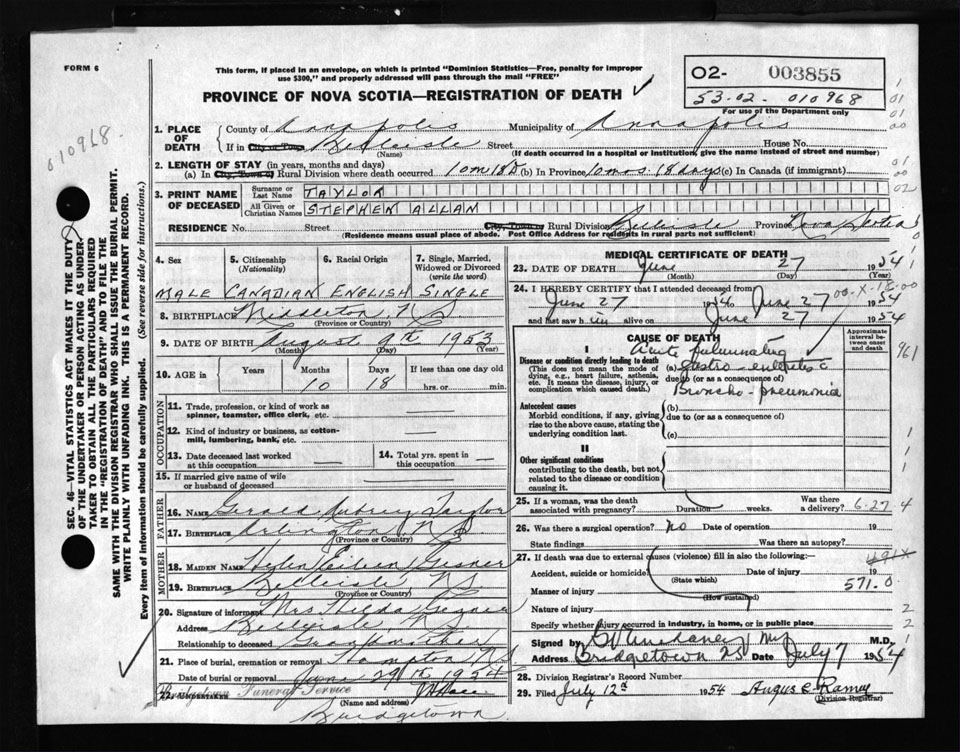 FORM 6
This form, if placed in an envelope, on which is printed "Dominion Statistics—Free, penalty for improper
use $300," and properly addressed will pass through the mail "FREE"
PROVINCE OF NOVA SCOTIA—REGISTRATION OF DEATH
O2- 003855
53-02- 010968
For use of the Department only
010968
SEC. 46—VITAL STATISTICS ACT MAKES IT THE DUTY
OF THE UNDERTAKER OR PERSON ACTING AS UNDER-
TAKER TO OBTAIN ALL THE PARTICULARS REQUIRED
IN THE "REGISTRATION OF DEATH" AND TO FILE THE
SAME WITH THE DIVISION REGISTRAR WHO SHALL ISSUE THE BURIAL PERMIT.
WRITE PLAINLY WITH UNFADING INK. THIS IS A PERMANENT RECORD.
Every item of information should be carefully supplied. (See reverse side for instructions.)
1. PLACE OF DEATH
County of Annapolis Municipality of Annapolis
If in City or Town or Belleisle Street House No.
(Name) (If death occurred in a hospital or institution, give the name instead of street and number)
2. LENGTH OF STAY (in years, months and days)
(a) In City, Town or Rural Division where death occurred 10m 18D (b) In Province 10mos. 18 days (c) In Canada (if immigrant)
3. PRINT NAME OF DECEASED
Surname or Last Name TAYLOR
All Given or Christian Names STEPHEN ALLAN
RESIDENCE No. Street City, Town or Rural Division Belleisle Province Nova Scotia
(Residence means usual place of abode. Post Office Address for residents in rural parts not sufficient)
4. Sex
5. Citizenship (Nationality)
6. Racial Origin
7. Single, Married, Widowed or Divorced (write the word)
MALE CANADIAN ENGLISH SINGLE
8. BIRTHPLACE Middleton, N.S.
(Province or Country)
9. DATE OF BIRTH August 9th 1953
(Month) (Day) (Year)
10. AGE in Years Months Days If less than one day old
10 18 hrs. or min.
OCCUPATION
11. Trade, profession, or kind of work as spinner, teamster, office clerk, etc.
12. Kind of industry or business, as cotton-mill, lumbering, bank, etc.
13. Date deceased last worked at this occupation
14. Total yrs. spent in this occupation
15. If married give name of wife or husband of deceased
FATHER
16. NAME Gerald Aubrey Taylor
17. BIRTHPLACE Arlington, N.S.
(Province or Country)
MOTHER
18. MAIDEN NAME Helen Eileen Gesner
19. BIRTHPLACE Belleisle, N.S.
(Province or Country)
20. Signature of informant Mrs. Hilda Gesner
Address Belleisle, N.S.
Relationship to deceased Grandmother
21. Place of burial, cremation or removal Hampton N.S.
Date of burial or removal June 29th 1954
22. UNDERTAKER Bridgetown Funeral Service
(Name and address)
Bridgetown
MEDICAL CERTIFICATE OF DEATH
23. DATE OF DEATH June 27 1954
(Month) (Day) (Year)
24. I HEREBY CERTIFY that I attended deceased from
00-X-18-00
June 27 1954 to June 27 1954
and last saw him alive on June 27 1954
CAUSE OF DEATH
Approximate interval between onset and death
I
Disease or condition directly leading to death
(This does not mean the mode of dying, e.g., heart failure, asthenia, etc. It means the disease, injury, or complication which caused death.)
Acute fulminating
(a) Gastro-enteritis c̄
due to (or as a consequence of)
Broncho-pneumonia
Antecedent causes
Morbid conditions, if any, giving rise to the above cause, stating the underlying condition last.
(b)
due to (or as a consequence of)
(c)
II
Other significant conditions
contributing to the death, but not related to the disease or condition causing it.
25. If a woman, was the death associated with pregnancy? Duration weeks. Was there a delivery? 6-27 4
26. Was there a surgical operation? no Date of operation 19
State findings Was there an autopsy?
27. If death was due to external causes (violence) fill in also the following:—
491X
Accident, suicide or homicide? Date of injury 19
(State which)
571.0
Manner of injury
(How sustained)
Nature of injury
Specify whether injury occurred in industry, in home, or in public place
Signed by M.D.
Address Bridgetown NS Date July 7 1954
28. Division Registrar's Record Number
29. Filed July 12th 1954 Angus C. Ramey
(Division Registrar)